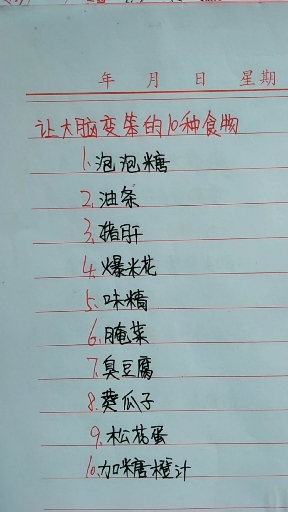 年 月 日 星期
让大脑变笨的10种食物
1.泡泡糖
2.油条
3.猪肝
4.爆米花
5.味精
6.腌菜
7.臭豆腐
8.葵瓜子
9.松花蛋
10.加糖橙汁